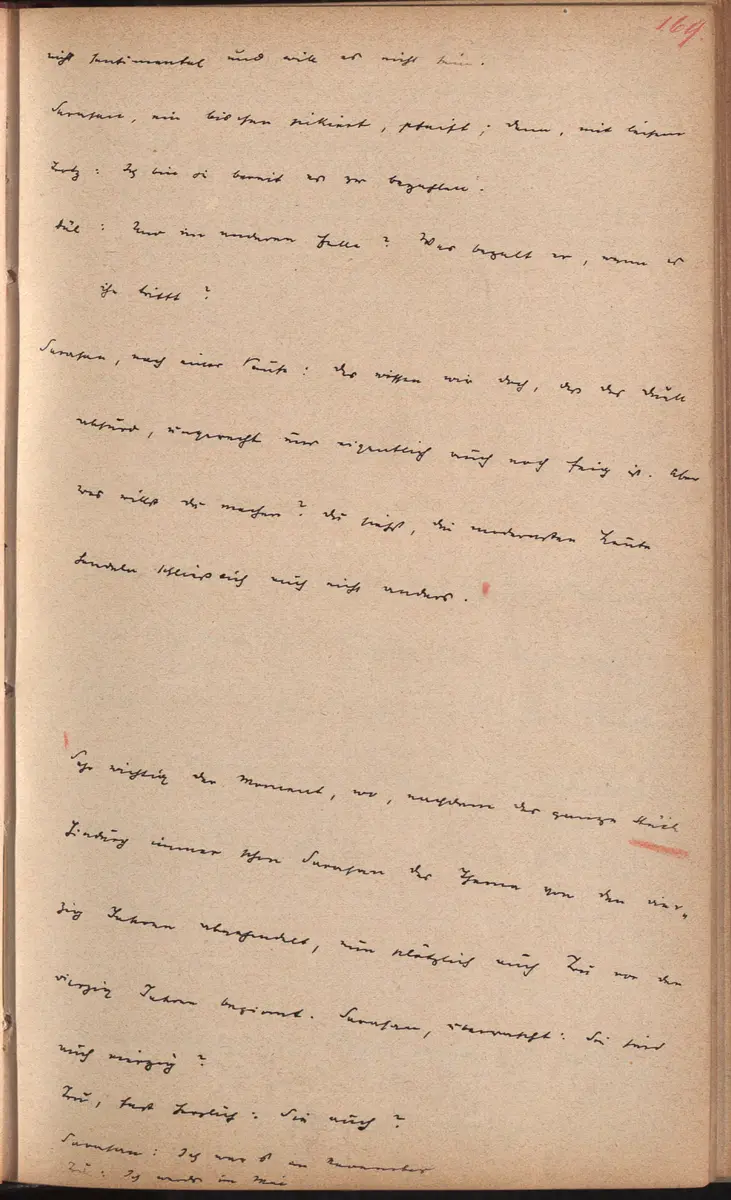 164.
nicht sentimental und will es nicht sein.
Sarasan, ein bischen pikiert, pfeift; dann, mit leisem
Trotz: Ich bin ja bereit es zu bezahlen.
: Und im anderen Falle? Was bezalt er, wenn es
ihn trifft?
Sarasan, nach einer Pause: Das wissen wir doch, daß das Duell
absurd, ungerecht und eigentlich auch noch feig ist. Aber
was willst du machen? Du siehst, die modernsten Leute
handeln schließlich auch nicht anders.
Sehr wichtig der Moment, wo, nachdem das ganze Stück
hindurch immer schon Sarasan das Thema von den vier-
zig Jahren abgehandelt, nun plötzlich auch von den
vierzig Jahren beginnt. Sarasan, überrascht: Sie sind
auch vierzig?
, fast herzlich: Sie auch?
Sarasan: Ich war es im November
: Ich werde im Mai